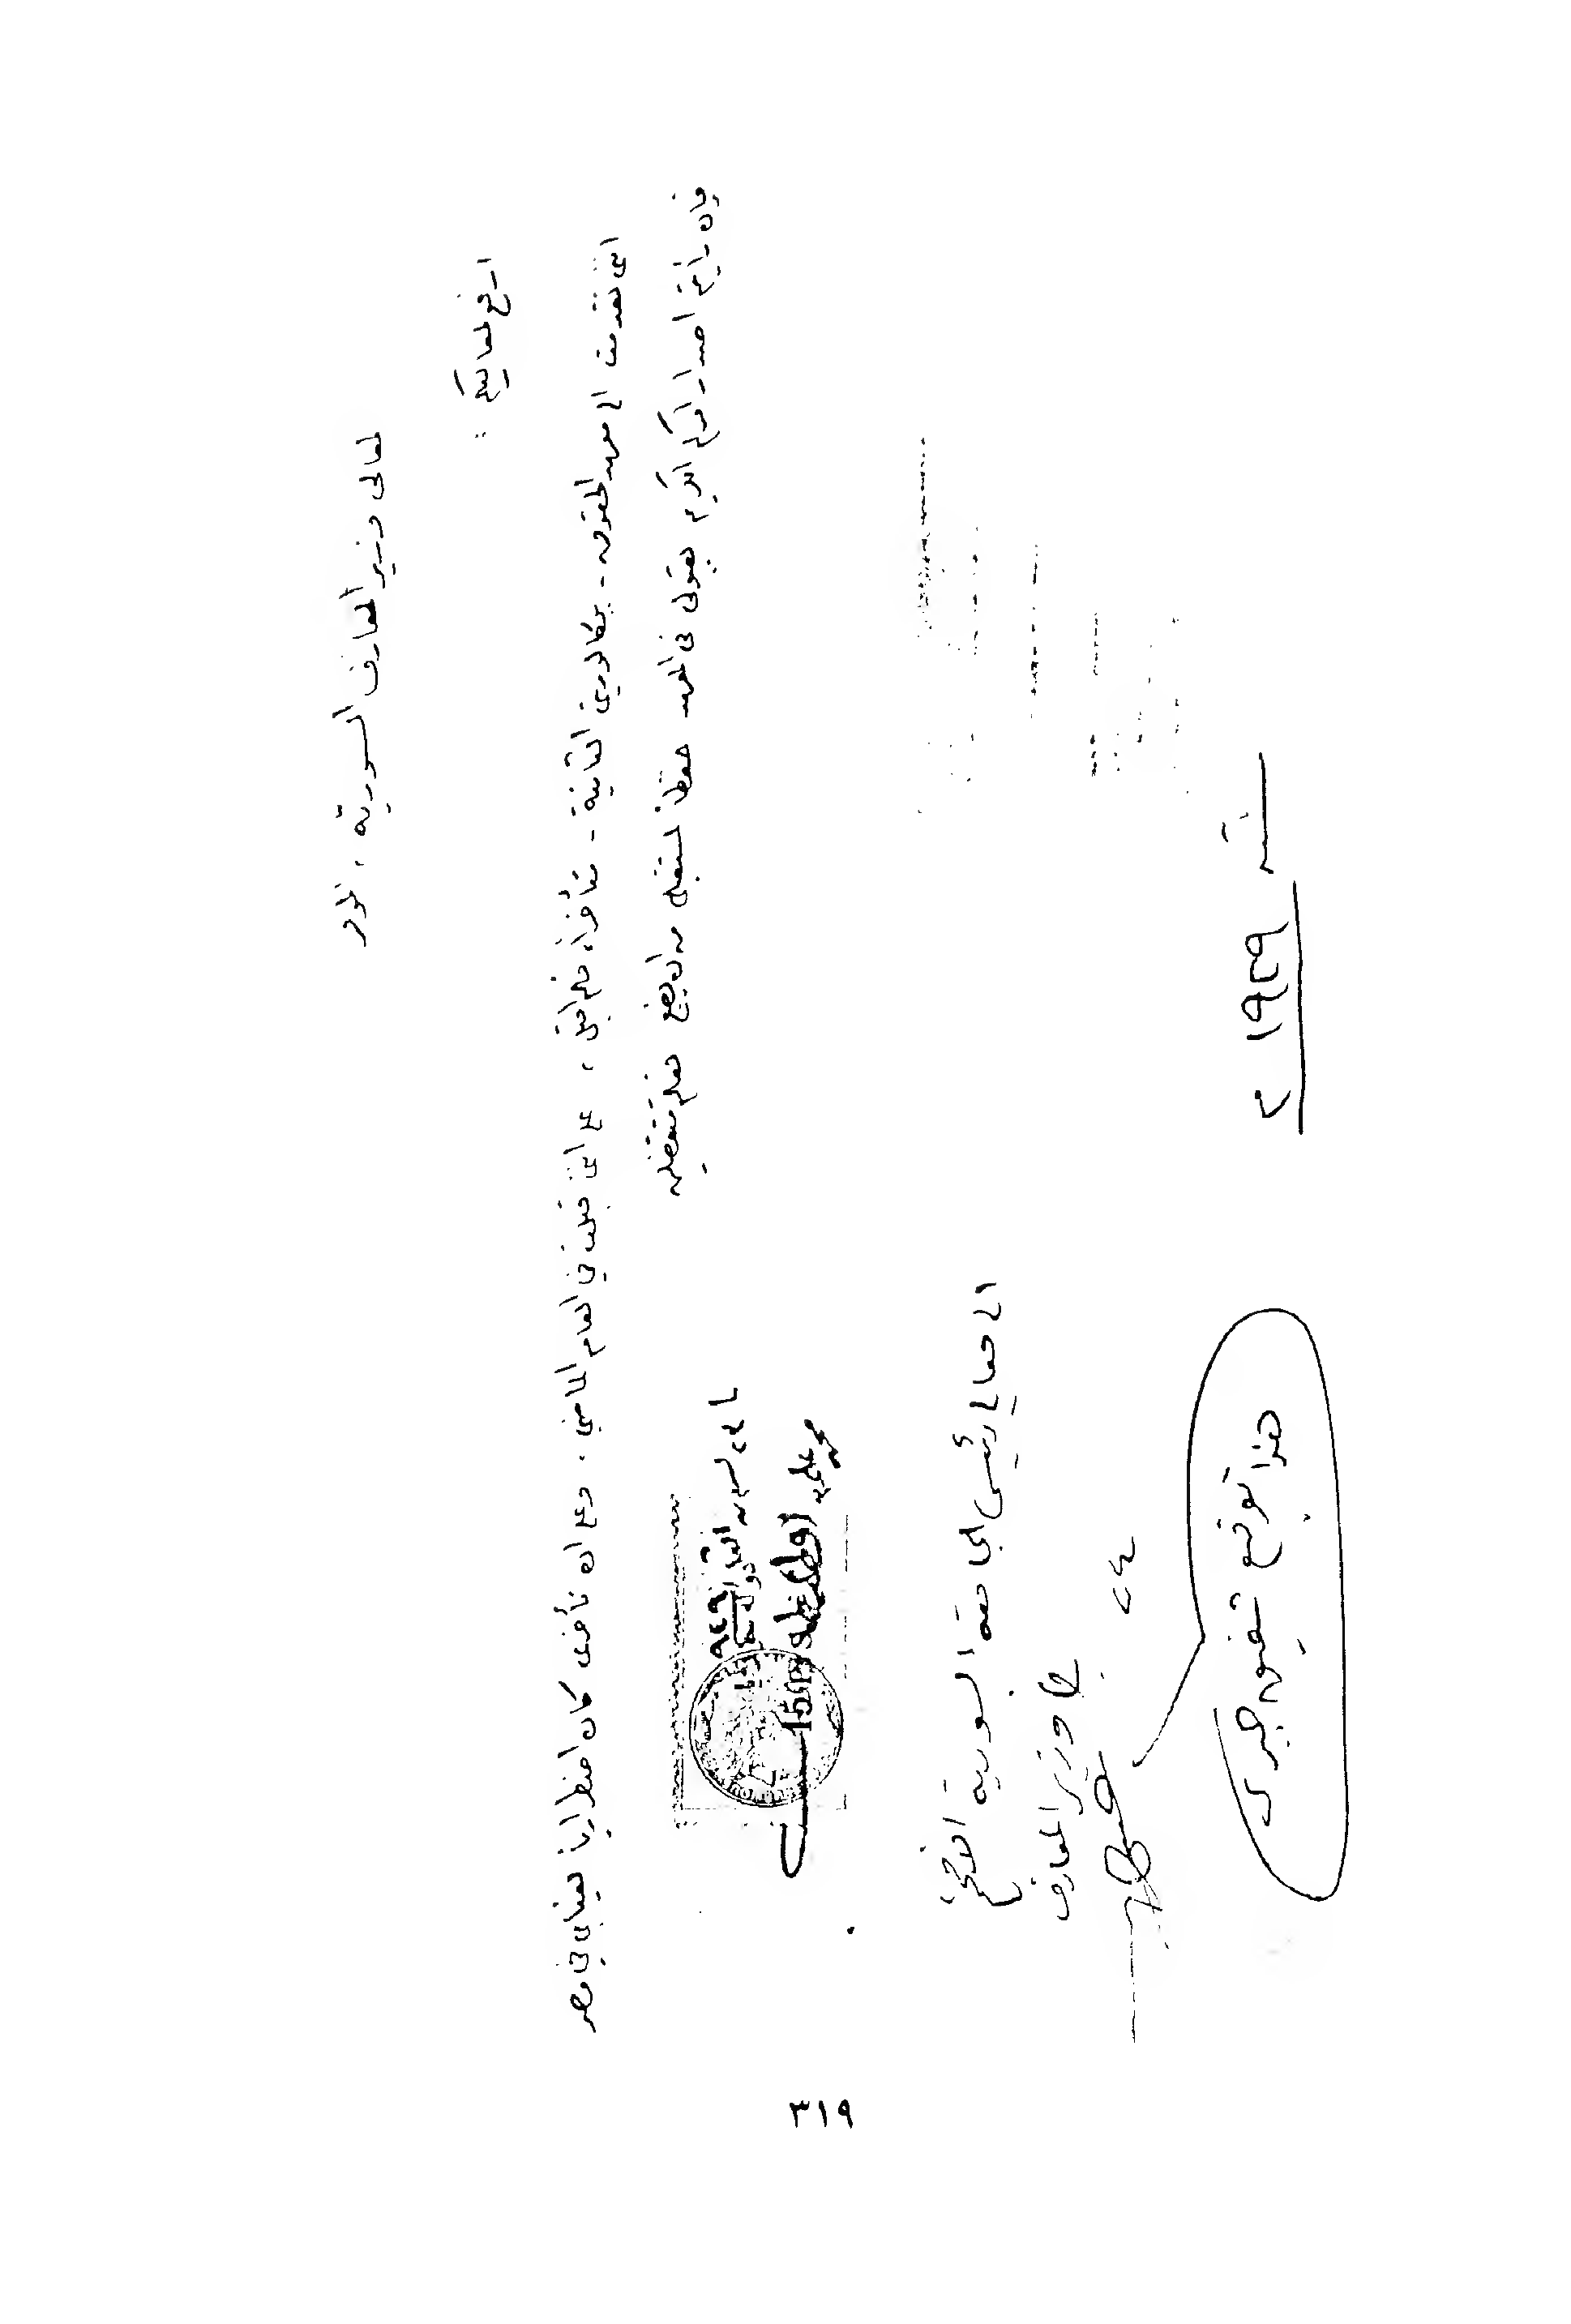 لمعالى وزير المعارف السورية ، الموقر
ارفع لمعاليكم :
اننى تقدمت الى معهد الحقوق - بكالوريتي الثانية - متأخراً فلم اقبل ، مع اننى قبلت في العام الماضي . ومع ان تأخرى كان اضطرارياً لغيابى في مصر
فان رأيتم اصدار امركم الكريم بقبولى فى المعهد حفظاً لمستقبلى من ان يضيع فعلتم متفضلين
تشرين الثانى
٩٤٩
محمد على الطنطاوى
150
الى معالي رئيس الجامعة السورية الافخم
وزير المعارف
هذا توقيع شفيق جبري
سنة ١٩٢٩ م
٣١٩